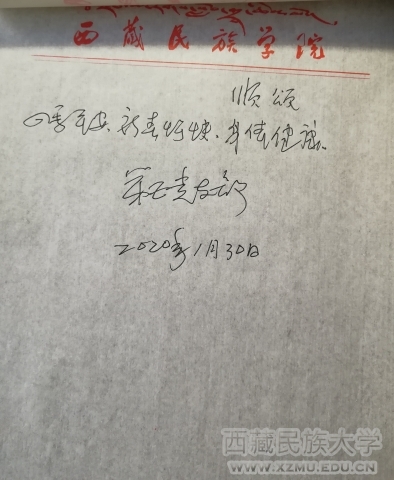 西藏民族学院
顺颂
四季平安、新春愉快、身体健康。
2020年1月30日
西藏民族大学
WWW.XZMU.EDU.CN